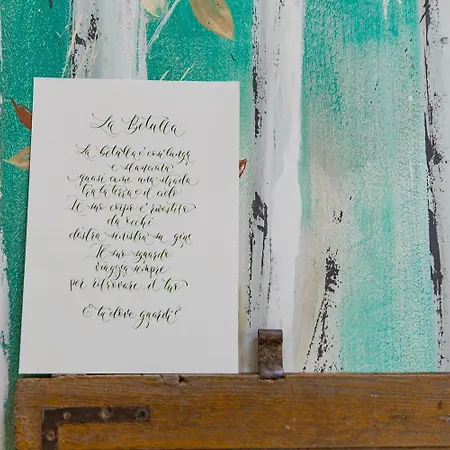 La Betulla
La betulla è così lunga
e slanciata
quasi come una strada
tra la terra e il cielo
Il suo corpo è rivestito
da occhi
destra sinistra su giù
Il suo sguardo
viaggia sempre
per ritrovare il
E tu dove guardi?